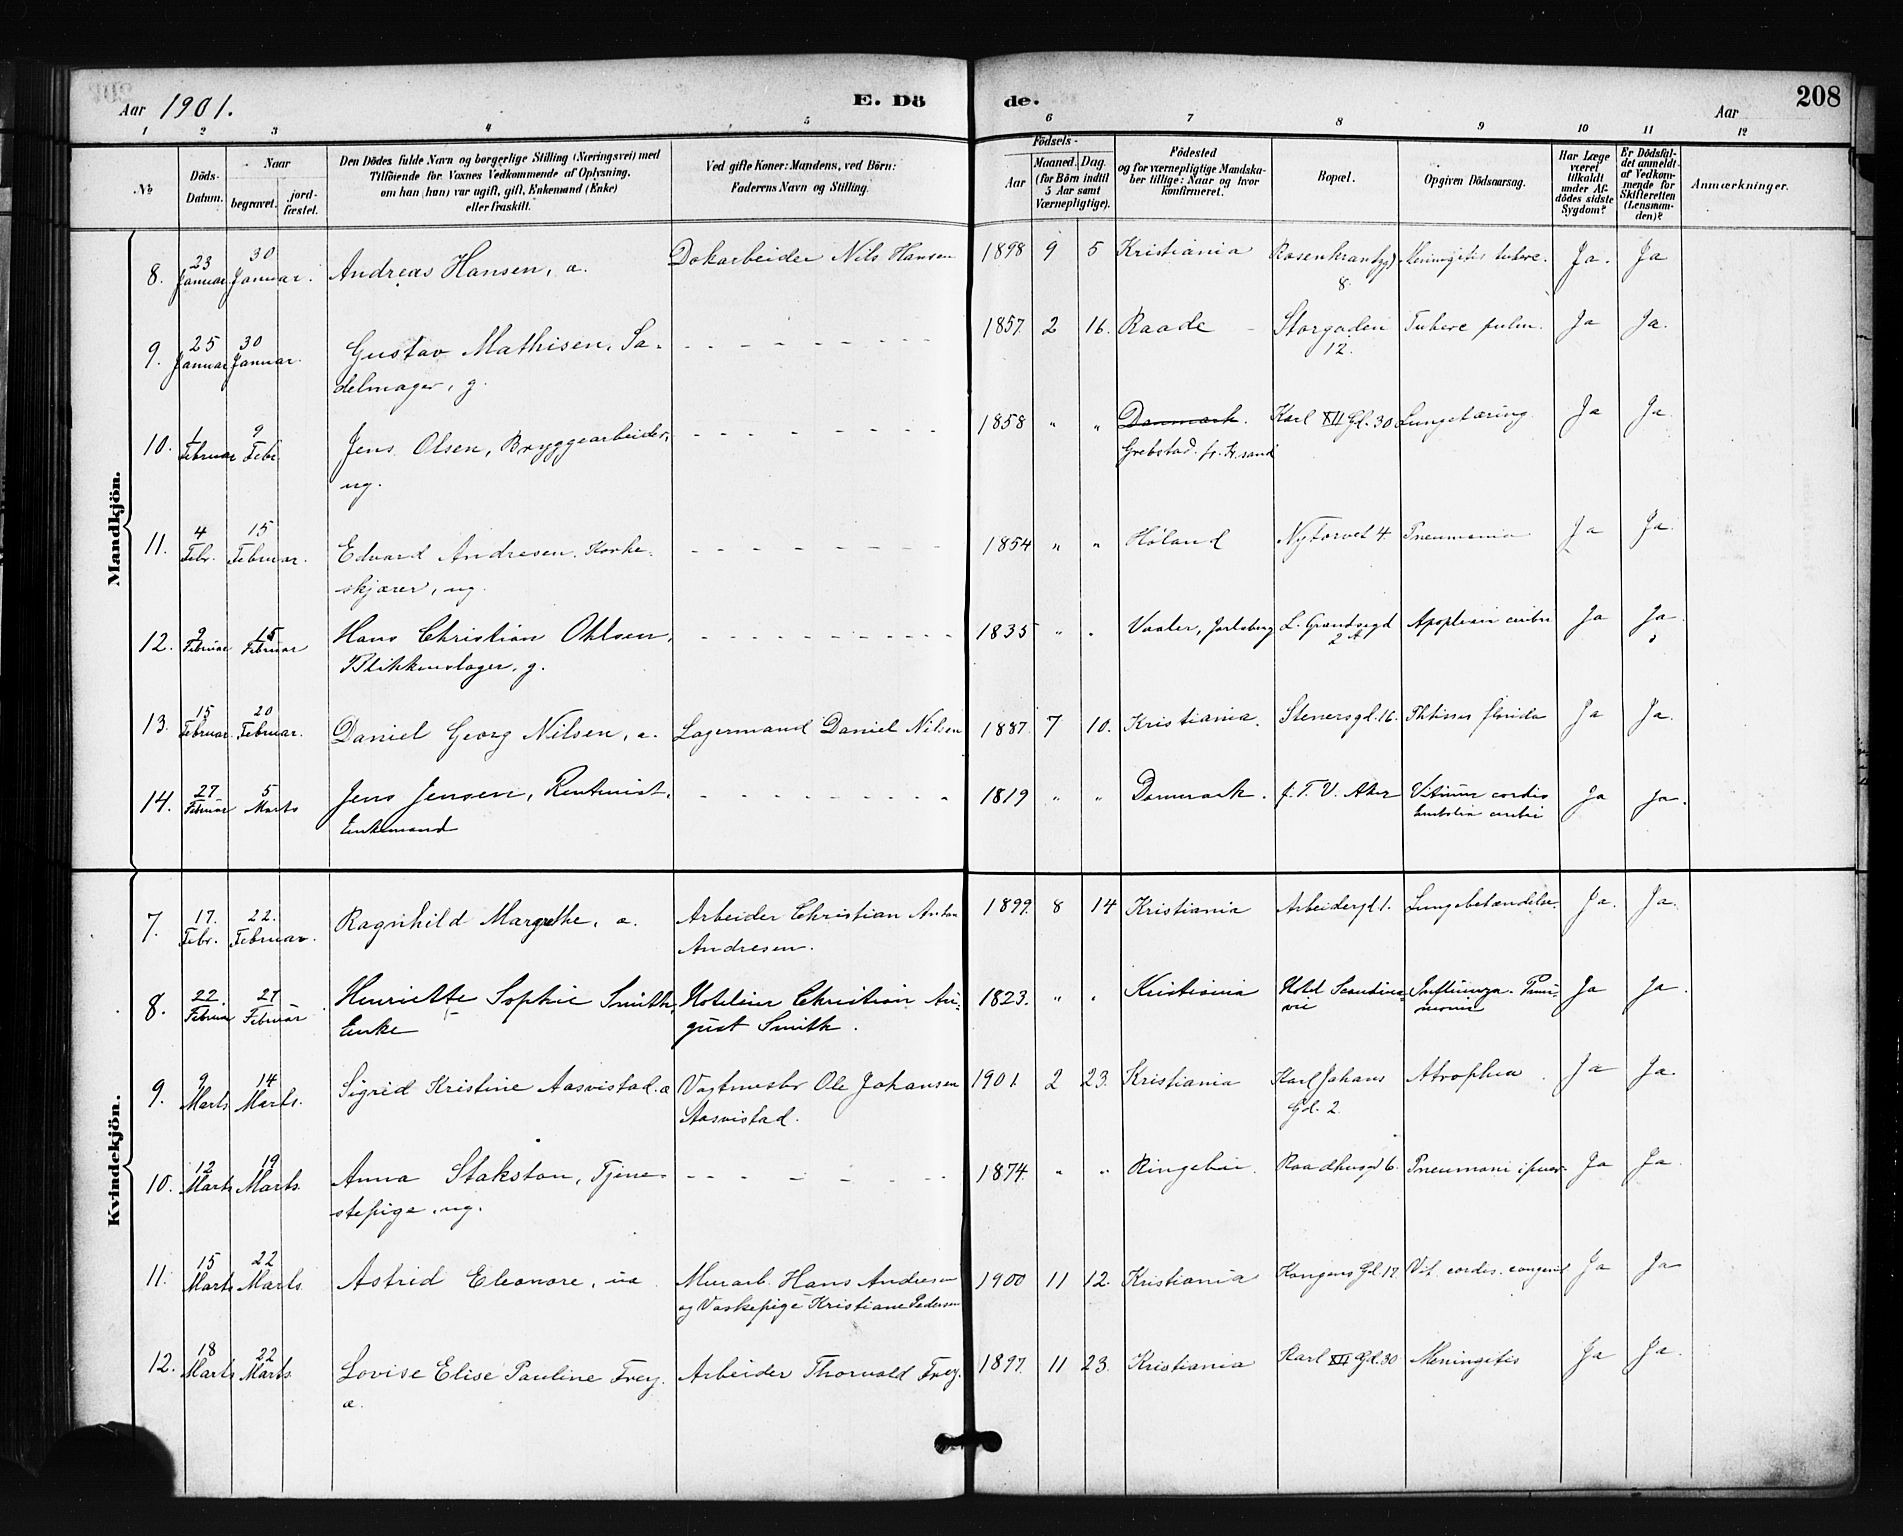 Aar 1901. E. Dö de. Aar 208
1 2 3 4 5 6 7 8 9 10 11 12
№
Döds-Datum.
Naar
begravet.
jord-fæstet.
Den Dödes fulde Navn og borgerlige Stilling (Næringsvei) med
Tilföiende for Voxnes Vedkommende af Oplysning.
om han (hun) var ugift, gift, Enkemand (Enke)
eller fraskilt.
Ved gifte Koner: Mandens, ved Börn:
Faderens Navn og Stilling.
Födsels-
Aar
Maaned. Dag.
(for Börn indtil
5 Aar samt
Værnepligtige).
Födested
og for værnepligtige Mandska-
ber tillige: Naar og hvor
konfirmeret.
Bopæl.
Opgiven Dödsaarsag.
Har Læge
været
tilkaldt
under Af-
dödes sidste
Sygdom?
Er Dödsfal-
det anmeldt
af Vedkom-
mende for
Skifteretten
(Lensman-
den)?
Anmærkninger.
Mandkjön.
8. 23 Januar 30 Januar. Andreas Hansen, a. Dokarbeider Nils Hansen 1898 9 5 Kristiania Rosenkrantzgd 8. Meningitis tuberc. Ja. Ja
9. 25 Januar 30 Januar. Gustav Mathisen, Sa- 1857. 2 16. Raade Storgaden 12. Tuberc pulm. Ja Ja.
delmager, g.
10. 1 Februar 9 Febr. Jens Olsen, Bryggearbeider, 1858 " " Danmark. Karl XII Gd. 30 Lungetæring Ja Ja
ug. Grebstad. fr. Kr.sand
11. 4 Febr. 15 Februar. Edvard Andresen. Korke- 1854 " " Høland Nytorvet 4. Pneumonia Ja Ja.
skjærer, ug.
12. 9 Februar 15 Februar Hans Christian Ohlsen, 1835 " " Vaaler, Jarlsberg L. Grændsegd 2 A Apoplexia cerebri Ja Ja
Blikkenslager, g.
13. 15 Februar. 20 Februar. Daniel Georg Nilsen, a. Lagermand Daniel Nilsen 1887. 7 10. Kristiania. Stenersgd. 16. Phtisis florida Ja Ja.
14. 27 Februar 5 Marts Jens Jensen, Rentenist, 1819 " " Danmark. f. T. V. Aker Vitium cordis Ja Ja.
Enkemand Embolia cerebri
Kvindekjön.
7. 17. Febr. 22. Februar. Ragnhild Margrethe, a. Arbeider Christian Anton 1899. 8 14 Kristiania Arbeidergd 1. Lungebetændelse. Ja. Ja.
Andresen.
8. 22. Februar 27 Februar Henriette Sophie Smith, Hoteleier Christian Au- 1823. " " Kristiania Hotel Scandina- Influenza. Pneu- Ja Ja.
Enke gust Smith. vie monie
9. 9 Marts 14 Marts. Sigrid Kristine Aasvistad. a Vagtmester Ole Johansen 1901. 2 23. Kristiania Karl Johans Atrophia. Ja Ja.
Aasvistad. Gd. 2.
10. 12 Marts 19 Marts. Anna Stakston, Tjene- 1874. " " Ringebu. Raadhusgd 6. Pneumoni Ja Ja.
stepige, ug.
11. 15 Marts 22 Marts. Astrid Eleonore, ua Murarb. Hans Andresen 1900 11 12. Kristiania Kongens Gd. 17 Vit. cordis. congenit Ja Ja
og Vaskepige Kristiane Pedersen
12. 18 Marts 22 Marts. Lovise Elise Pauline Frey. Arbeider Thorvald Frey. 1897. 11 23. Kristiania Karl XII Gd. 30 Meningitis Ja Ja.
a.